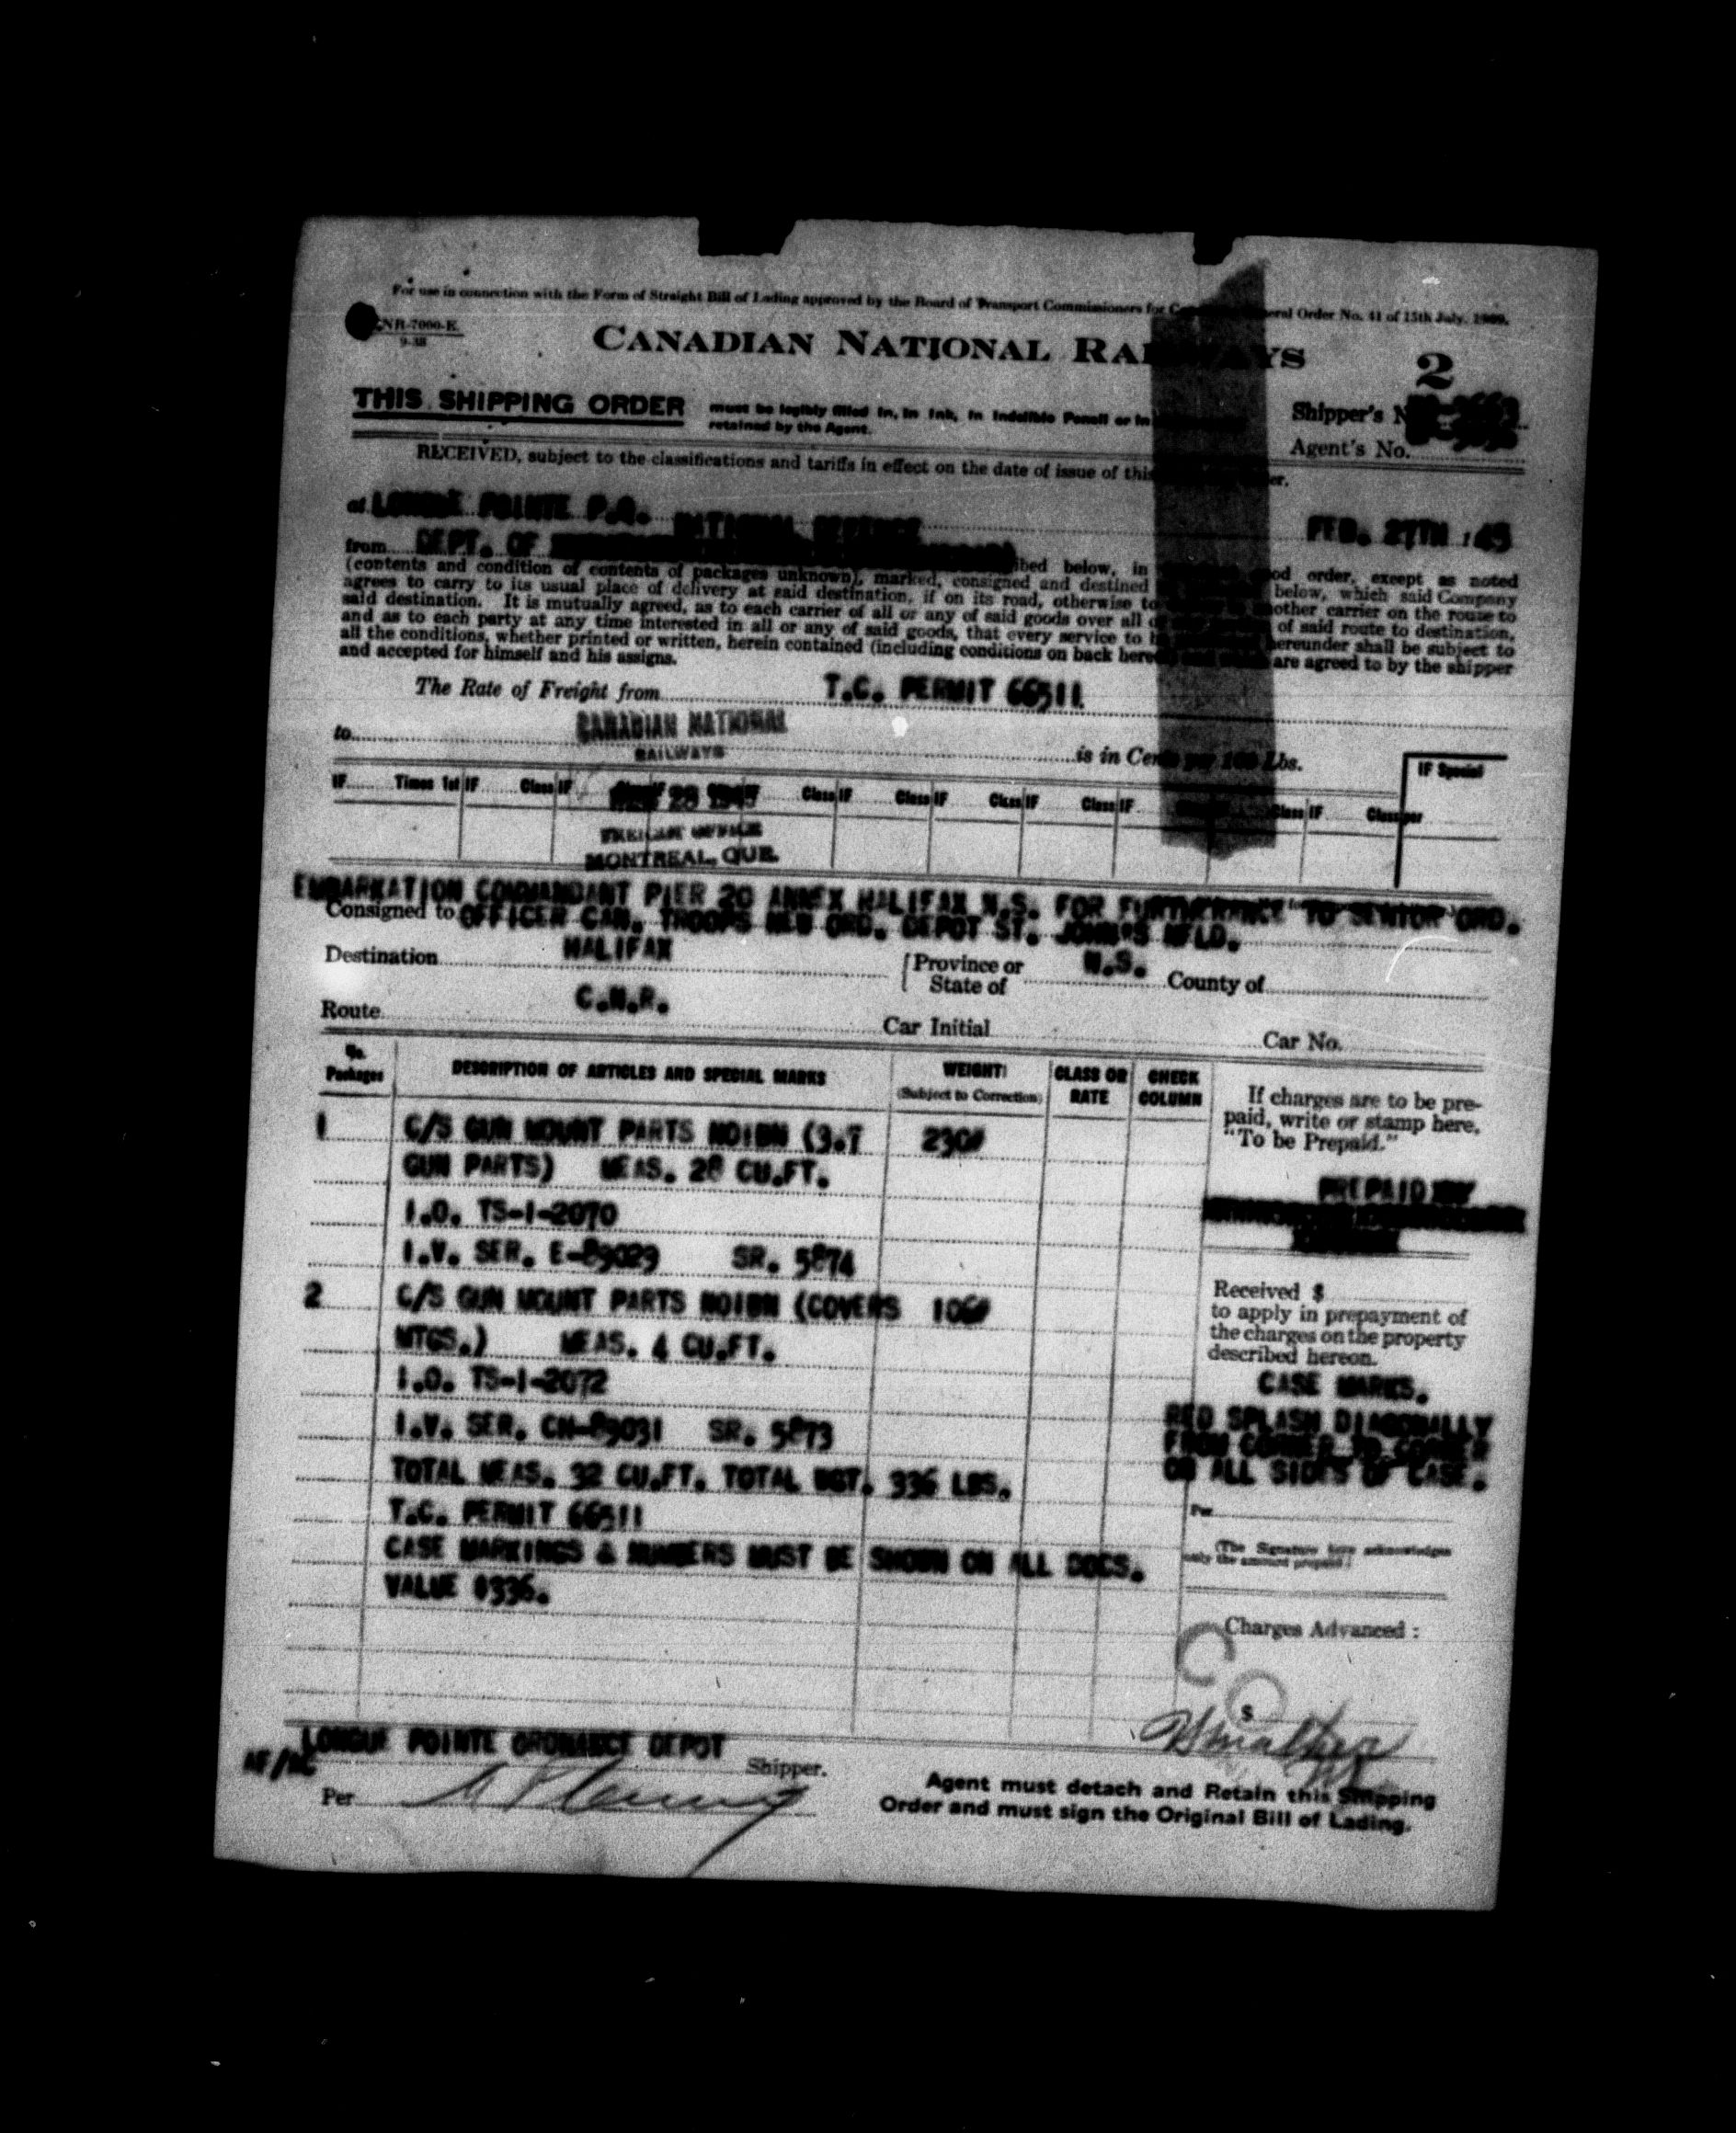 For use in connection with the Form of Straight Bill of Lading approved by the Board of Transport Commissioners for General Order No. 41 of 15th July, 1909.
CNR-7000-E.
9-38
CANADIAN NATIONAL RAILWAYS
2
THIS SHIPPING ORDER must be legibly filled in, in Ink, in Indelible Pencil or in
retained by the Agent.
Shipper's No.
Agent's No.
RECEIVED, subject to the classifications and tariffs in effect on the date of issue of this
at LONGUE POINTE P.Q. FEB. 27TH 1945
NATIONAL DEFENCE
from DEPT. OF
ibed below, in good order, except as noted
(contents and condition of contents of packages unknown), marked, consigned and destined below, which said Company
agrees to carry to its usual place of delivery at said destination, if on its road, otherwise to another carrier on the route to
said destination. It is mutually agreed, as to each carrier of all or any of said goods over all of said route to destination,
and as to each party at any time interested in all or any of said goods, that every service to be hereunder shall be subject to
all the conditions, whether printed or written, herein contained (including conditions on back hereof are agreed to by the shipper
and accepted for himself and his assigns.
The Rate of Freight from T.C. PERMIT 66511
to is in Cents per 100 Lbs.
CANADIAN NATIONAL
RAILWAYS
IF Special
IF Times 1st IF Class IF Class IF Class IF Class IF Class IF Class IF Class IF Class per
28 1945
FREIGHT OFFICE
MONTREAL, QUE.
EMBARKATION COMMANDANT PIER 20 ANNEX HALIFAX N.S. FOR FURTHERANCE TO SENIOR ORD.
Consigned to OFFICER CAN. TROOPS NEW ORD. DEPOT ST. JOHN'S NFLD.
Destination HALIFAX Province or State of N.S. County of
Route C.N.R. Car Initial Car No.
No. Packages DESCRIPTION OF ARTICLES AND SPECIAL MARKS WEIGHT (Subject to Correction) CLASS OR RATE CHECK COLUMN
If charges are to be pre-
paid, write or stamp here,
"To be Prepaid."
1 C/S GUN MOUNT PARTS NOIBN (3.7 230#
GUN PARTS) MEAS. 28 CU.FT.
PREPAID
I.O. TS-1-2070
I.V. SER. E-89029 SR. 5874
2 C/S GUN MOUNT PARTS NOIBN (COVERS 106#
MTGS.) MEAS. 4 CU.FT.
Received $
to apply in prepayment of
the charges on the property
described hereon.
I.O. TS-1-2072
I.V. SER. CH-89031 SR. 5873
CASE MARKS.
RED SPLASH DIAGONALLY
FROM CORNER TO CORNER
ON ALL SIDES OF CASE.
TOTAL MEAS. 32 CU.FT. TOTAL WGT. 336 LBS.
T.C. PERMIT 66511
Per
CASE MARKINGS & NUMBERS MUST BE SHOWN ON ALL DOCS.
(The Signature here acknowledges
only the amount prepaid)
VALUE $336.
Charges Advanced:
$
LONGUE POINTE ORDNANCE DEPOT
Shipper.
Per
Agent must detach and Retain this Shipping
Order and must sign the Original Bill of Lading.